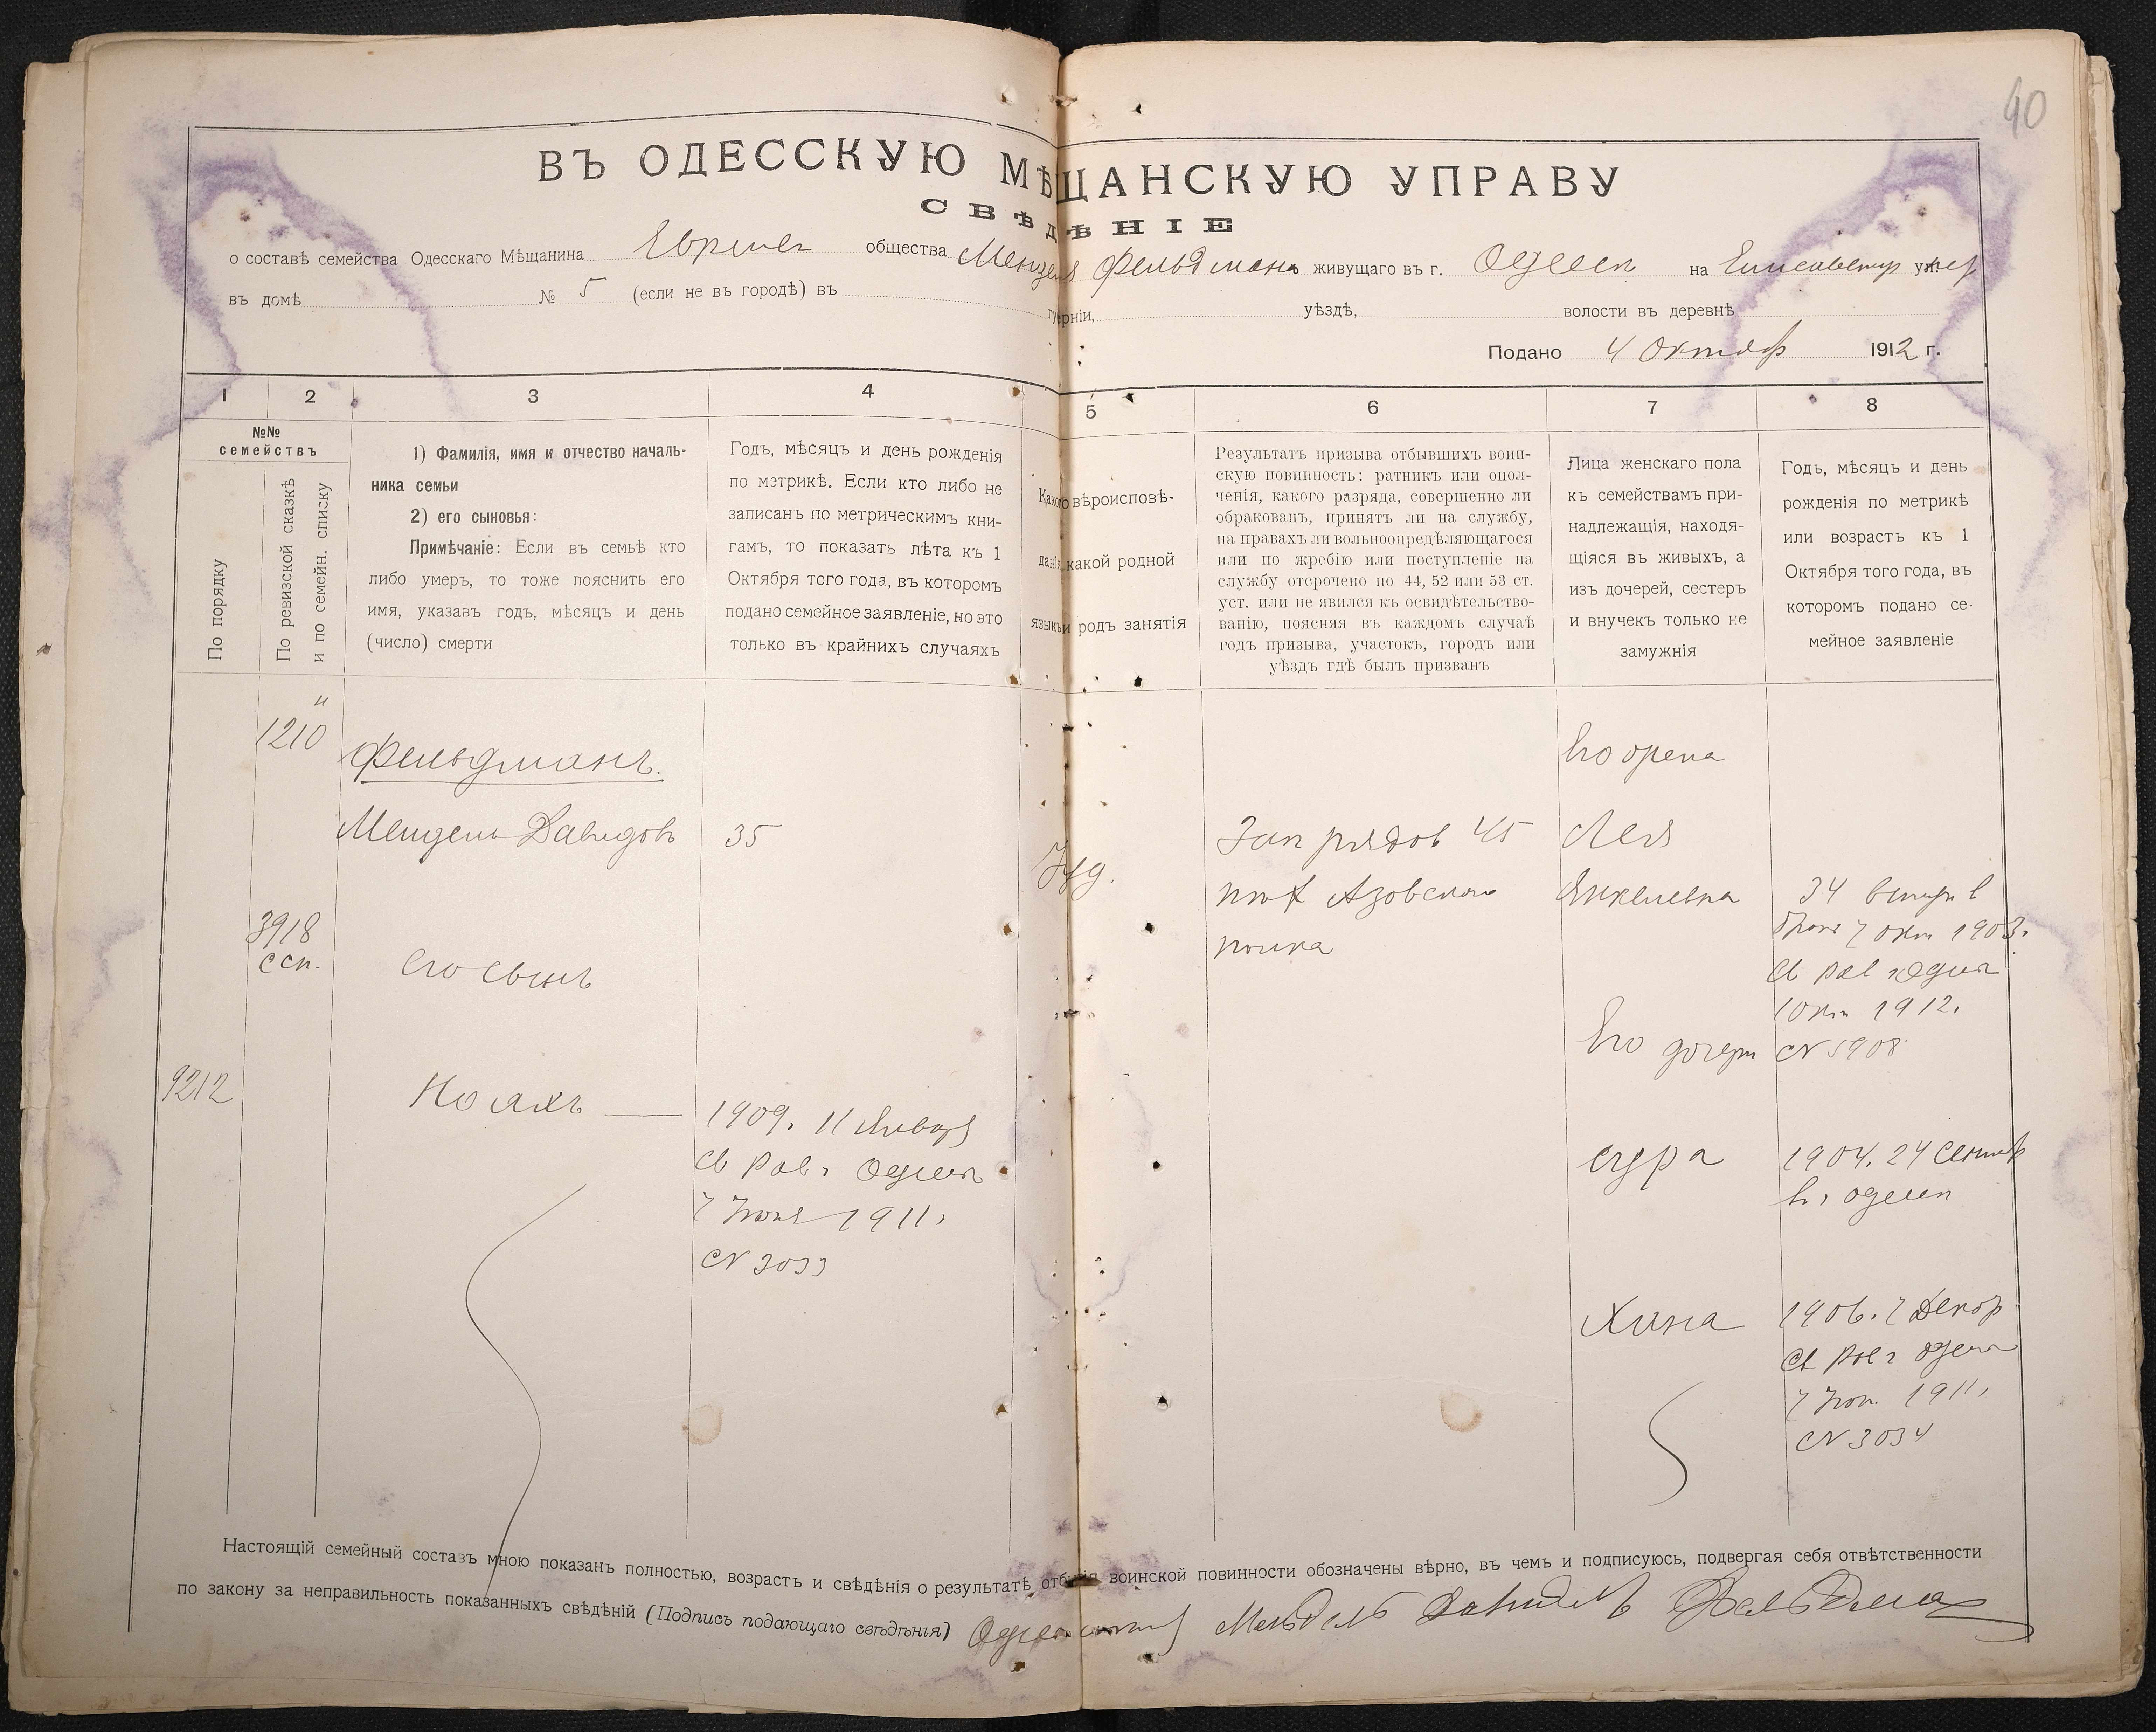 40
ВЪ ОДЕССКУЮ МѢЩАНСКУЮ УПРАВУ
СВѢДѢНІЕ
о составѣ семейства Одесскаго Мѣщанина общества Менделя Фельдмана живущаго въ г. Одессѣ на
въ домѣ № 5 (если не въ городѣ) въ губерніи, уѣздѣ, волости въ деревнѣ
Подано 4 Октябр 1912 г.
1 2 3 4 5 6 7 8
№№
семействъ
По порядку
По ревизской сказкѣ
и по семейн. списку
1) Фамилія, имя и отчество началь-
ника семьи
2) его сыновья:
Примѣчаніе: Если въ семьѣ кто
либо умеръ, то тоже пояснить его
имя, указавъ годъ, мѣсяцъ и день
(число) смерти
Годъ, мѣсяцъ и день рожденія
по метрикѣ. Если кто либо не
записанъ по метрическимъ кни-
гамъ, то показать лѣта къ 1
Октября того года, въ которомъ
подано семейное заявленіе, но это
только въ крайнихъ случаяхъ
Какого вѣроисповѣ-
данія какой родной
языкъ и родъ занятія
Результатъ призыва отбывшихъ воин-
скую повинность: ратникъ или опол-
ченія, какого разряда, совершенно ли
обракованъ, принятъ ли на службу,
на правахъ ли вольноопредѣляющагося
или по жребію или поступленіе на
службу отсрочено по 44, 52 или 53 ст.
уст. или не явился къ освидѣтельство-
ванію, поясняя въ каждомъ случаѣ
годъ призыва, участокъ, городъ или
уѣздъ гдѣ былъ призванъ
Лица женскаго пола
къ семействамъ при-
надлежащія, находя-
щіяся въ живыхъ, а
изъ дочерей, сестеръ
и внучекъ только не
замужнія
Годъ, мѣсяцъ и день
рожденія по метрикѣ
или возрастъ къ 1
Октября того года, въ
которомъ подано се-
мейное заявленіе
1210
Фельдманъ.
Мендель Давидовъ 35
Іуд.
Зап рядов 45
пѣх Азовскаго
полка
Его жена
Лея
Янкелевна
34 вступ в
бракъ 7 окт 1903.
Св рав г Одессы
1 Окт 1912.
№ 5908
3918
ссп.
Его сынъ
9212
Ноахъ
1909. 11 Января
Св Рав г Одессы
7 Іюня 1911,
№ 3033
Его дочери
Сура
1904. 24 Сентяб
в г Одессѣ
Хина
1906. 7 Декбр
Св Рав г Одессы
7 Іюн. 1911,
№ 3034
Настоящій семейный составъ мною показанъ полностью, возрастъ и свѣдѣнія о результатѣ отбытія воинской повинности обозначены вѣрно, въ чемъ и подписуюсь, подвергая себя отвѣтственности
по закону за неправильность показанныхъ свѣдѣній (Подпись подающаго свѣдѣнія) Мендель Фельдма